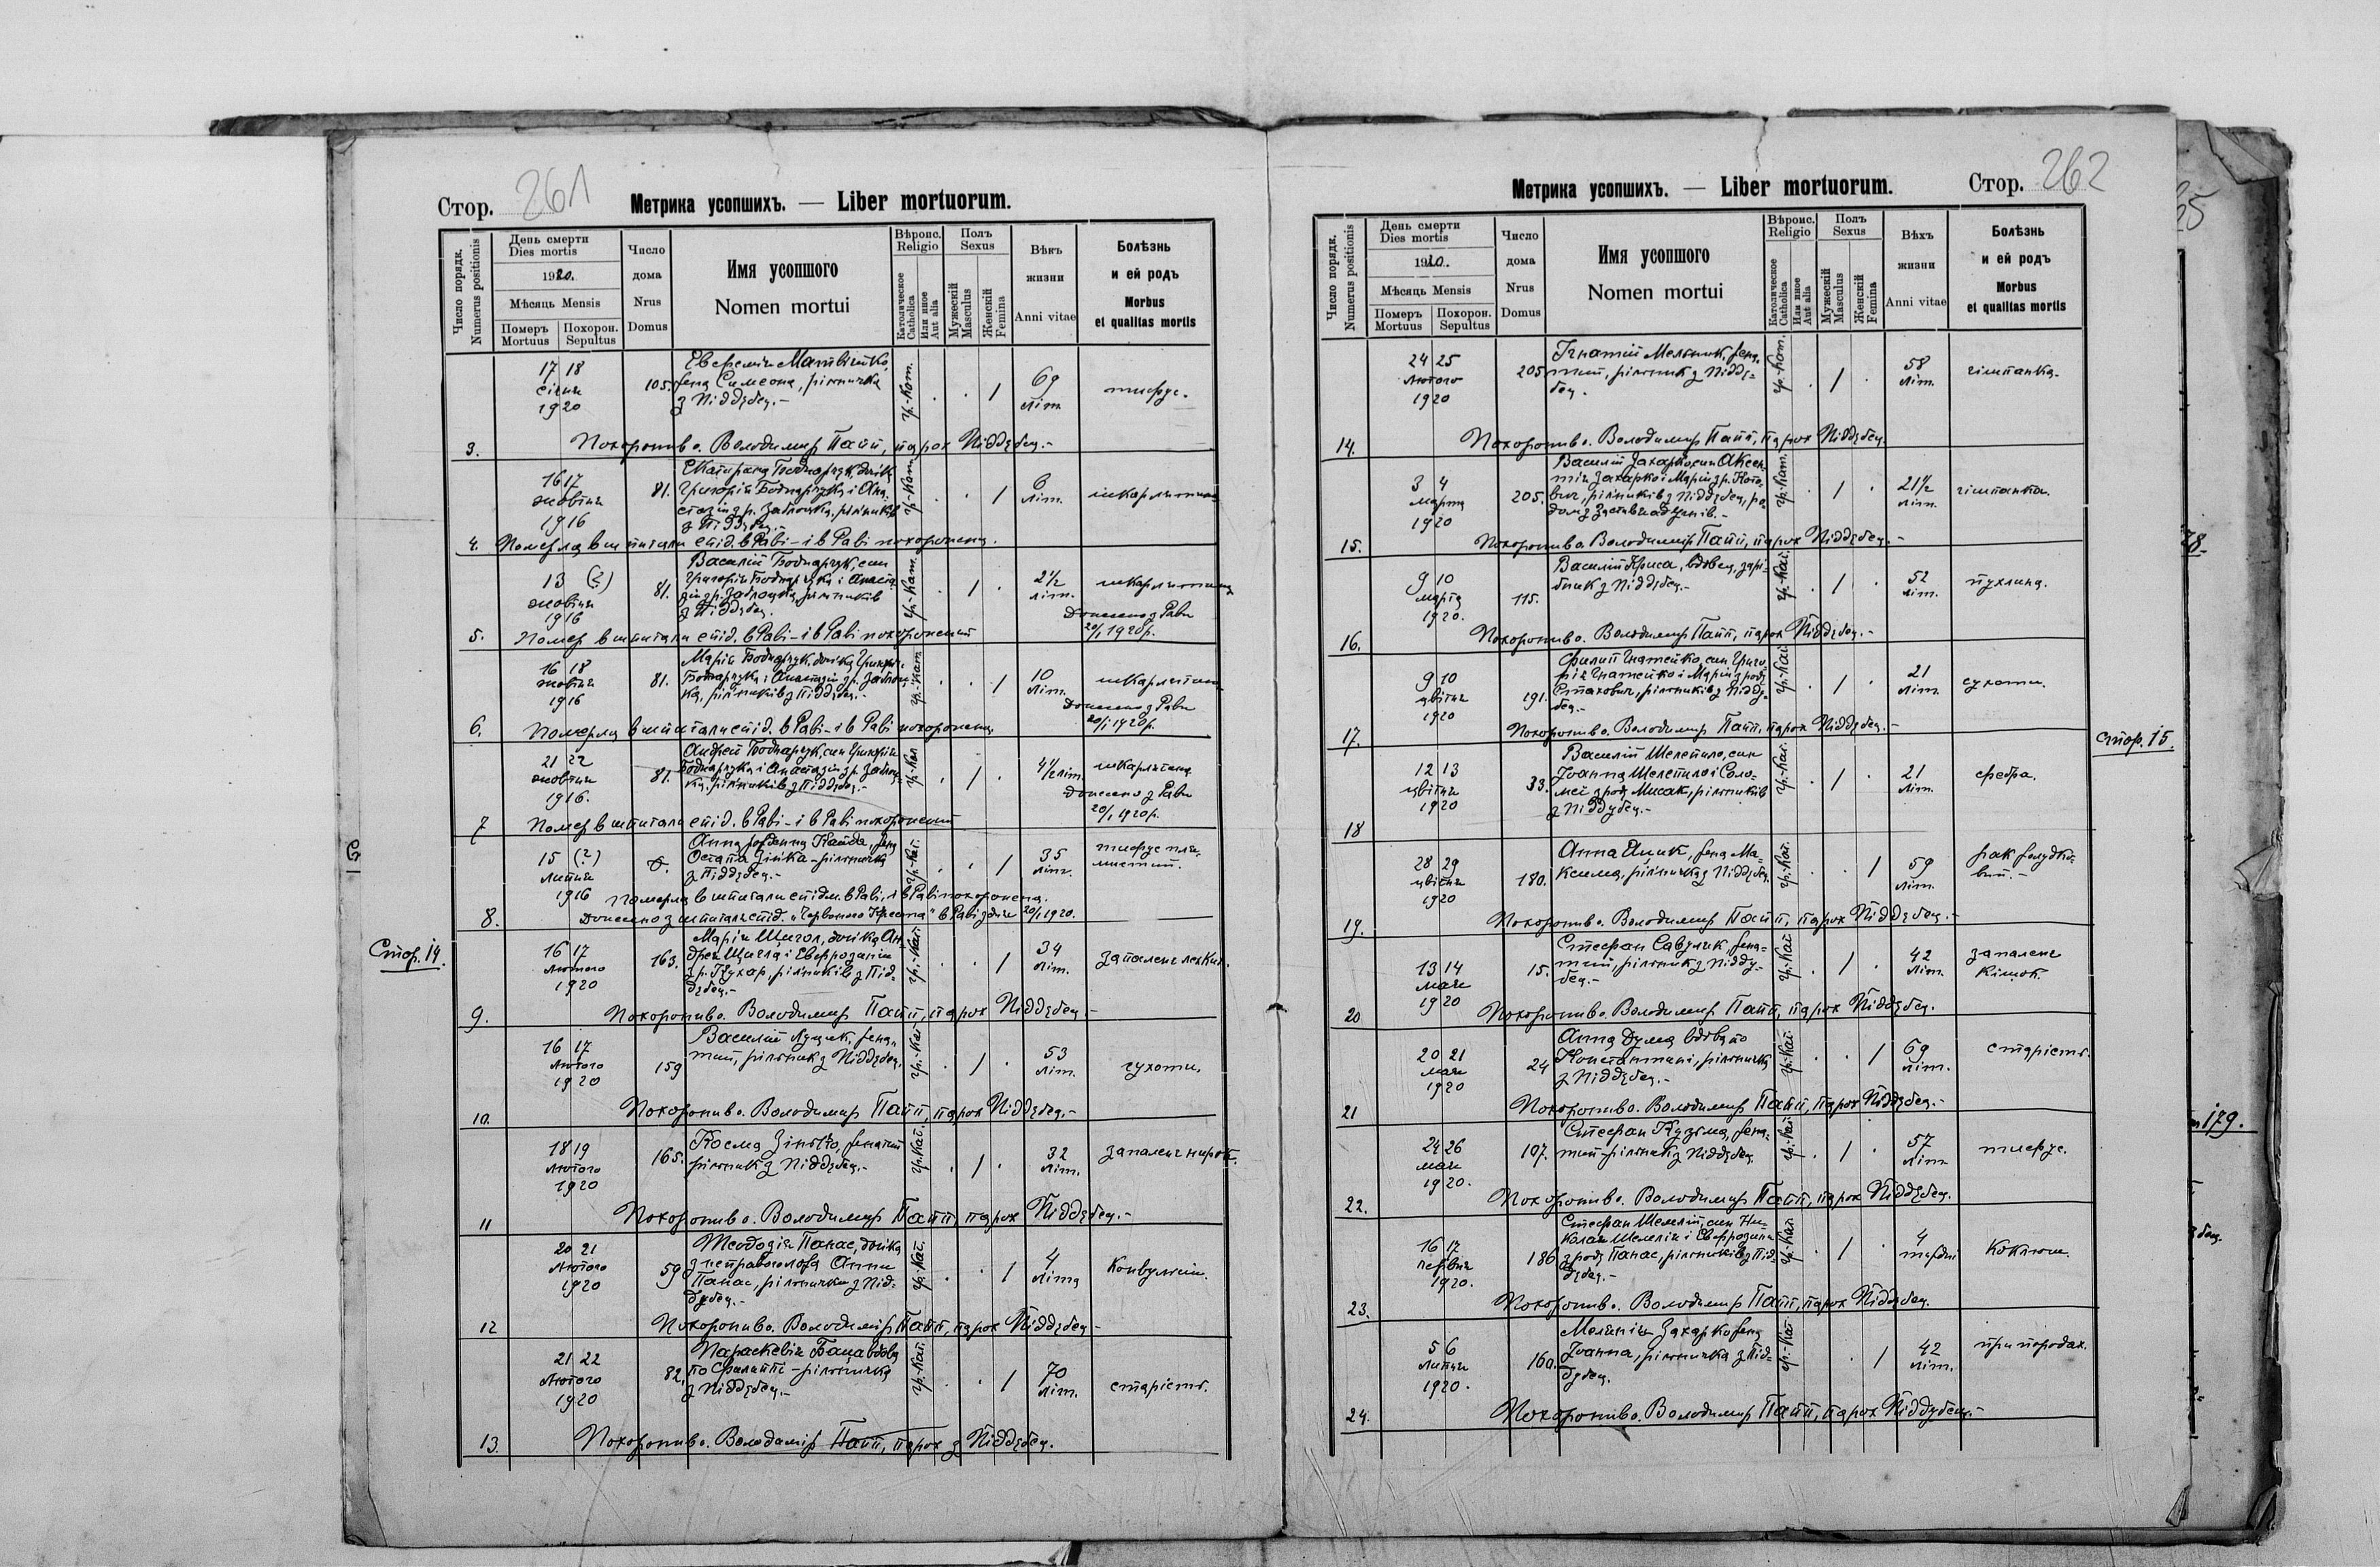 Стор. 261 Метрика усопшихъ. — Liber mortuorum.
Число порядк. Numerus positionis
День смерти
Dies mortis
1920.
Мѣсяць Mensis
Померъ Mortuus
Похорон. Sepultus
Число дома Nrus Domus
Имя усопшого
Nomen mortui
Вѣроис. Religio
Католическое Catholica
Или иное Aut alia
Полъ Sexus
Мужескій Masculus
Женскій Femina
Вѣкъ жизни Anni vitae
Болѣзнь и ей родъ
Morbus et qualitas mortis
17 18
січня
1920
105.
жена Симеона, рільничка
з Піддубец.-
гр.-кат.
69 літ
тифус.
3. Похоронив о. Володимир Папп, парох Піддубец.-
16 17
жовтня
1916
81.
Катерина Боднарчук, дочка
Григорія Боднарчука і Ана-
з Піддубец.-
гр.-кат.
6 літ.
4. Померла в шпитали епід. в Раві - і в Раві похоронена.
13 (?)
жовтня
1916
81.
Василий Боднарчук, син
Григорія Боднарчука і Анаста-
рільників
з Піддубец.
гр.-кат.
2½ літ.
шкарлятина
Донесено з Рави
20/1 1920р.
5. Помер в шпитали епід. в Раві - і в Раві похоронений
16 18
жовтня
1916
81.
Марія Боднарчук, дочка
Боднарчука і Анастазії
рільників з Піддубец.-
гр.-кат.
10 літ.
шкарлятина
Донесено з Рави
20/1 1920р.
6. Померла в шпитали епід. в Раві - і в Раві похоронена.
21 22
жовтня
1916.
81.
Андрей Боднарчук, син Григорія
Боднарчука і Анастазії
рільників з Піддубец.-
гр.-кат.
4½ літ.
шкарлятина
Донесено з Рави
20/1 1920р.
7 Помер в шпитали епід. в Раві - і в Раві похоронений
15 (?)
липня
1916
Анна жена
Остапа Зінька - рільничка
з Піддубец.-
гр.-кат.
35 літ.
тифус пля-
мистий.
Померла в шпитали епідем. в Раві, і в Раві похоронена.
8. Донесено з шпиталя епід. "Червоного Хреста" в Раві з дня 20/1 1920.
Стор. 14.
16 17
лютого
1920
163.
Марія Щигол, дочка Ан-
дрея Щигла і Евфрозини
з р. Кухар, рільників з Під-
дубец.-
гр.-кат.
34 літ.
запаленє легких.
9. Похоронив о. Володимир Папп, парох Піддубец.-
16 17
лютого
1920
159
Василий Луцик, жена-
тий, рільник з Піддубец.
гр.-кат.
53 літ.
сухоти.
10. Похоронив о. Володимир Папп, парох Піддубец.-
18 19
лютого
1920
165.
Косма Зінько, женатий
рільник з Піддубец.-
гр.-кат.
32 літ.
запаленє нирок.
11 Похоронив о. Володимир Папп, парох Піддубец.-
20 21
лютого
1920
59
Теодозія Панас, дочка
з неправого ложа Анни
Панас, рільнички з Під-
дубец.-
гр.-кат.
4 літа
Конвульсії.
12 Похоронив о. Володимір Папп, парох Піддубец.-
21 22
лютого
1920
82.
Параскевія Баца вдова
по Филипі - рільничка
з Піддубец.-
гр.-кат.
70 літ.
старість.
13. Похоронив о. Володимір Папп, парох з Піддубец.
Метрика усопшихъ. — Liber mortuorum. Стор. 262
Число порядк. Numerus positionis
День смерти
Dies mortis
1920.
Мѣсяць Mensis
Померъ Mortuus
Похорон. Sepultus
Число дома Nrus Domus
Имя усопшого
Nomen mortui
Вѣроис. Religio
Католическое Catholica
Или иное Aut alia
Полъ Sexus
Мужескій Masculus
Женскій Femina
Вѣхъ жизни Anni vitae
Болѣзнь и ей родъ
Morbus et qualitas mortis
24 25
лютого
1920
205
Ігнатий Мельник, жена-
тий, рільник з Підду-
бец.
гр.-кат.
58 літ.
гішпанка.
14. Похоронив о. Володимир Папп, парох Піддубец.
3 4
марта
1920
205.
Василий Захарко, син Аксен-
тія Захарко і Марії
рільників з Піддубец, ро-
гр.-кат.
21½ літ.
гішпанка.
15. Похоронив о. Володимір Папп, парох Піддубец.-
9 10
марта
1920.
115.
Василий Криса, вдовец, зарі-
бник з Піддубец.-
гр.-кат.
52 літ.
пухлина.
16. Похоронив о. Володимир Папп, парох Піддубец.-
9 10
цвітня
1920
191.
Филип Гнатейко, син Григо-
рія Гнатейко і Марії з роду
Стахович, рільників з Підду-
бец.-
гр.-кат.
21 літ.
сухоти.
17. Похоронив о. Володимир Папп, парох Піддубец.-
Стор. 15.
12 13
цвітня
1920
33.
Василий Шелепило, син
Іоанна Шелепила і Соло-
меї з роду Мисак, рільників
з Піддубец.-
гр.-кат.
21 літ.
фебра.
18
28 29
цвітня
1920
180.
Анна жена Ма-
ксима, рільничка з Піддубец.
гр.-кат.
59 літ.
рак жолудко-
вий.-
19. Похоронив о. Володимир Папп, парох Піддубец.-
13 14
мая
1920
15.
Стефан Савуляк, жена-
тий, рільник з Підду-
бец.-
гр.-кат.
42 літ.
запаленє
кішок.
20 Похоронив о. Володимир Папп, парох Піддубец.
20 21
мая
1920
24
Анна Дума вдова по
Константині, рільничка
з Піддубец.-
гр.-кат.
69 літ.
старість.
21 Похоронив о. Володимир Папп, парох Піддубец.-
24 26
мая
1920.
107.
Стефан Кузьма, жена-
тий рільник з Піддубец.
гр.-кат.
57 літ
тифус.
22. Похоронив о. Володимир Папп, парох Піддубец.
16 17
червня
1920.
186
Стефан Шемелій, син Ни-
колая Шемелія і Евфрозини
з роду Панас, рільників з Під-
дубец.-
гр.-кат.
4 тыждні
Коклюш.
23. Похоронив о. Володимир Папп, парох Піддубец.
5 6
липня
1920.
160.
Меланія Захарко жена
Іоанна, рільничка з Під-
дубец.
гр.-кат.
42 літ.
при породах.
24. Похоронив о. Володимир Папп, парох Піддубец.-
179.